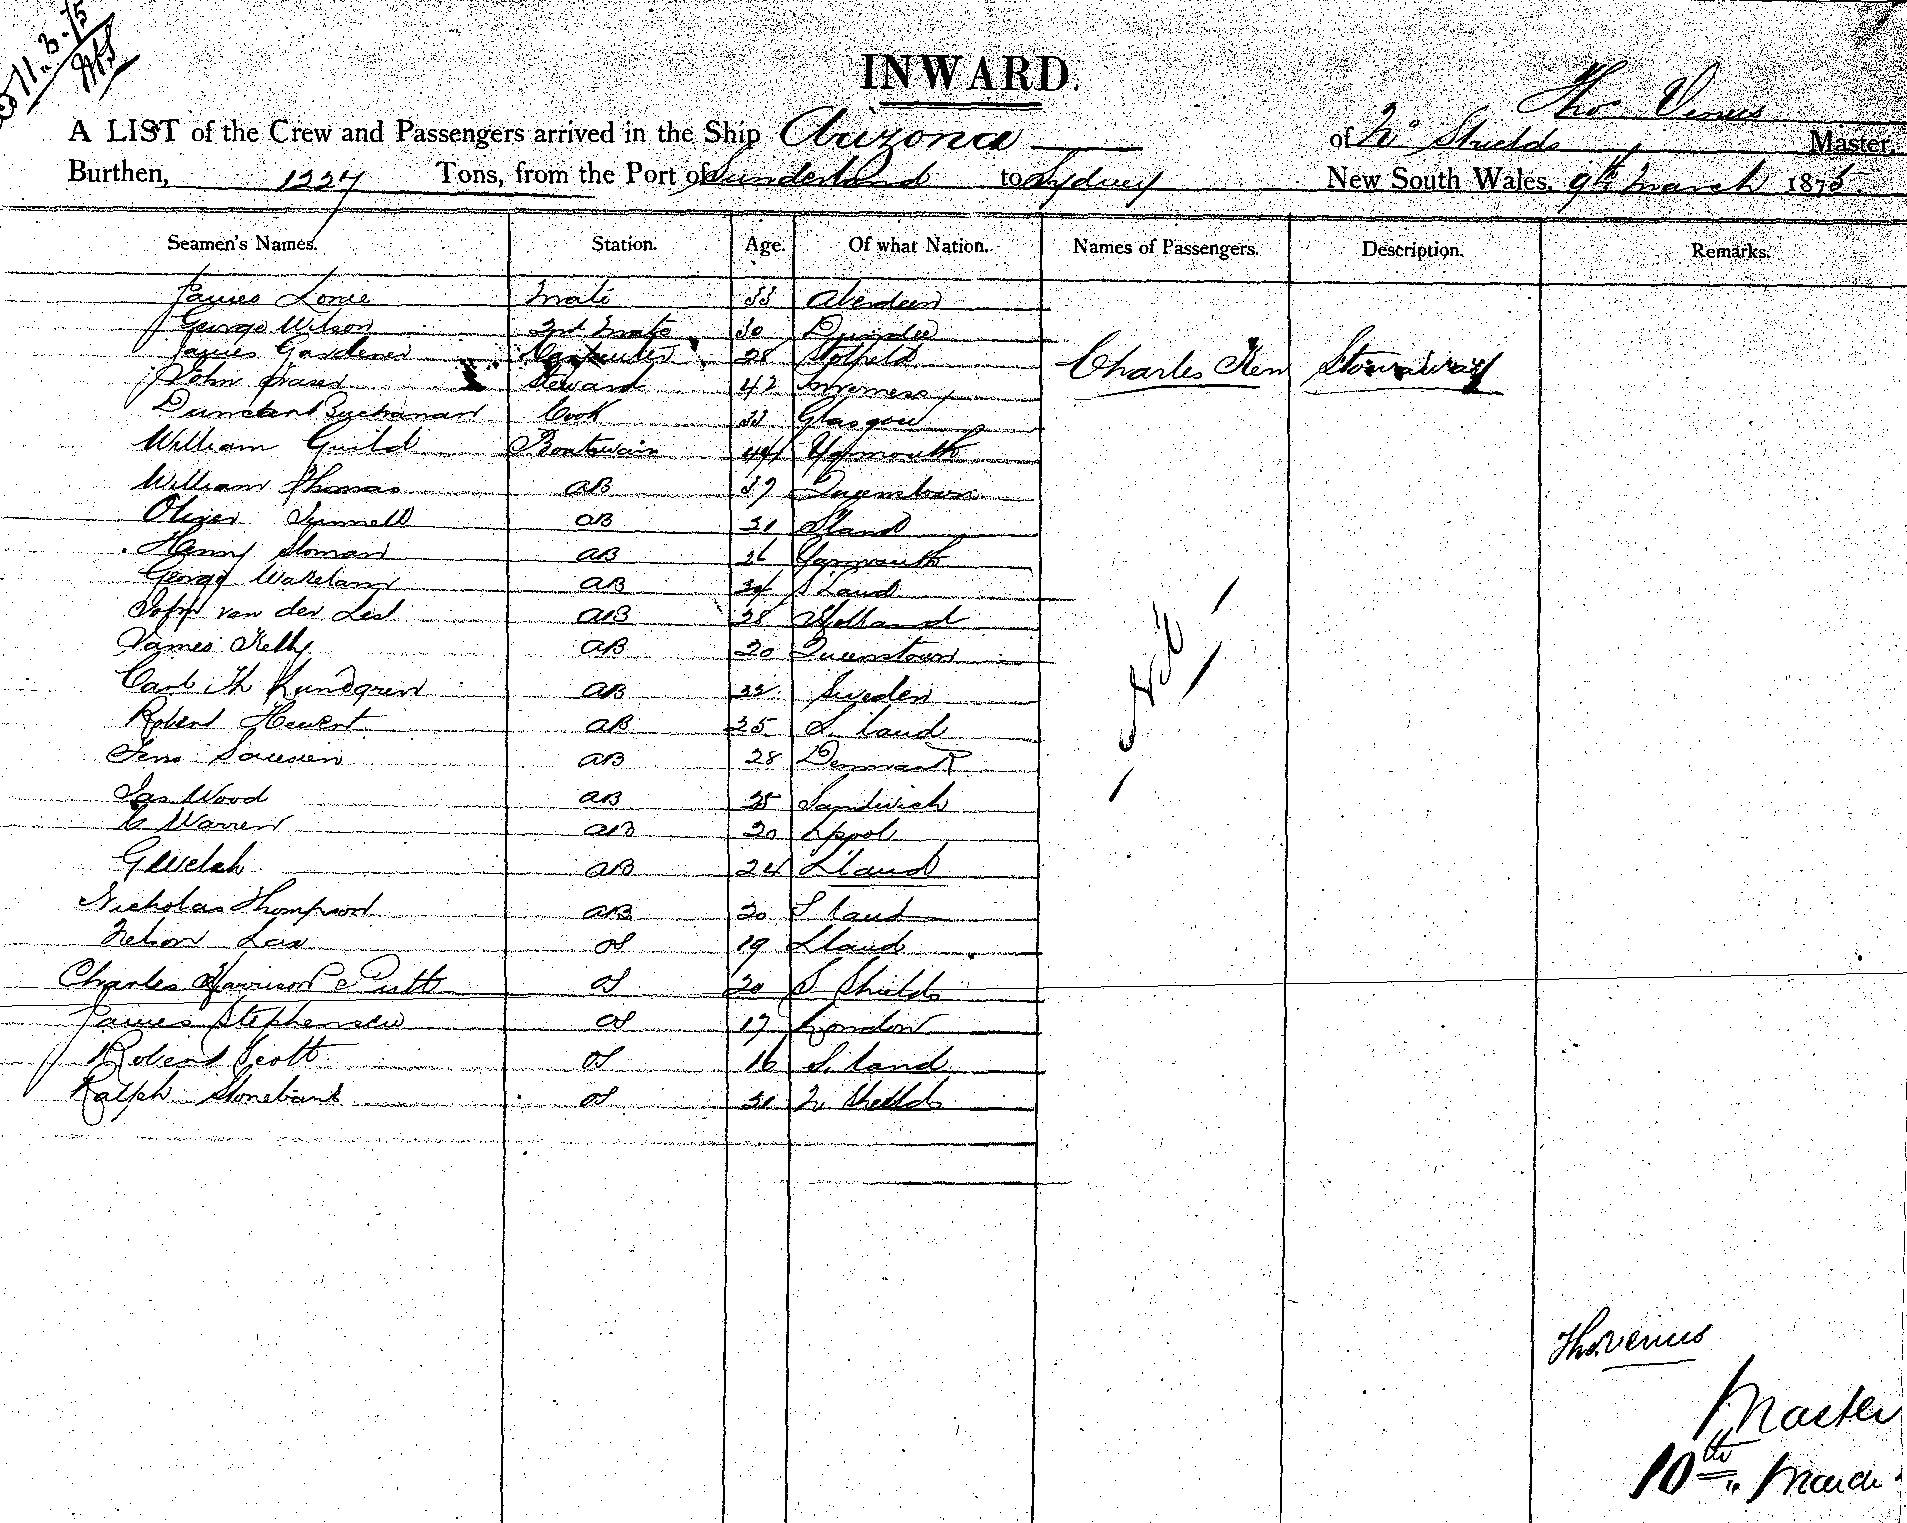 11.3.75
INWARD.
A LIST of the Crew and Passengers arrived in the Ship Arizona of No Shields Tho. Venus Master,
Burthen, 1227 Tons, from the Port of Sunderland to Sydney New South Wales, 9th March 1875
Seamen's Names. Station. Age. Of what Nation. Names of Passengers. Description. Remarks.
James Mate 33 Aberdeen
George Wilson 2nd Mate 30 Dundee
James Gardener Carpenter 28
John Fraser Steward 42 Inverness
Buchanan Cook 33 Glasgow
Charles Ken Stowaway
William Guild Boatswain 44 Yarmouth
William Thomas AB 37 Queenstown
Oliver AB 31 Sland
Henry Sloman AB 26 Yarmouth
George Wakeham AB 24 S Land
van der AB 28 Holland
James Kelly AB 20 Queenstown
Carl Th AB 22 Sweden
Robert AB 25 S. land
Jens AB 28 Denmark
Jas Wood AB 25 Sandwich
C Warren AB 20 Lpool
G Welch AB 24
Nicholas Thompson AB 20 S land
Nelson OS 19
Charles Harrison OS 20 S Shields
James Stephenson OS 17 London
Robert Scott OS 16 S. land
Ralph Stonebank OS 21 N Shields
Nil
Tho. Venus
Master
10th March